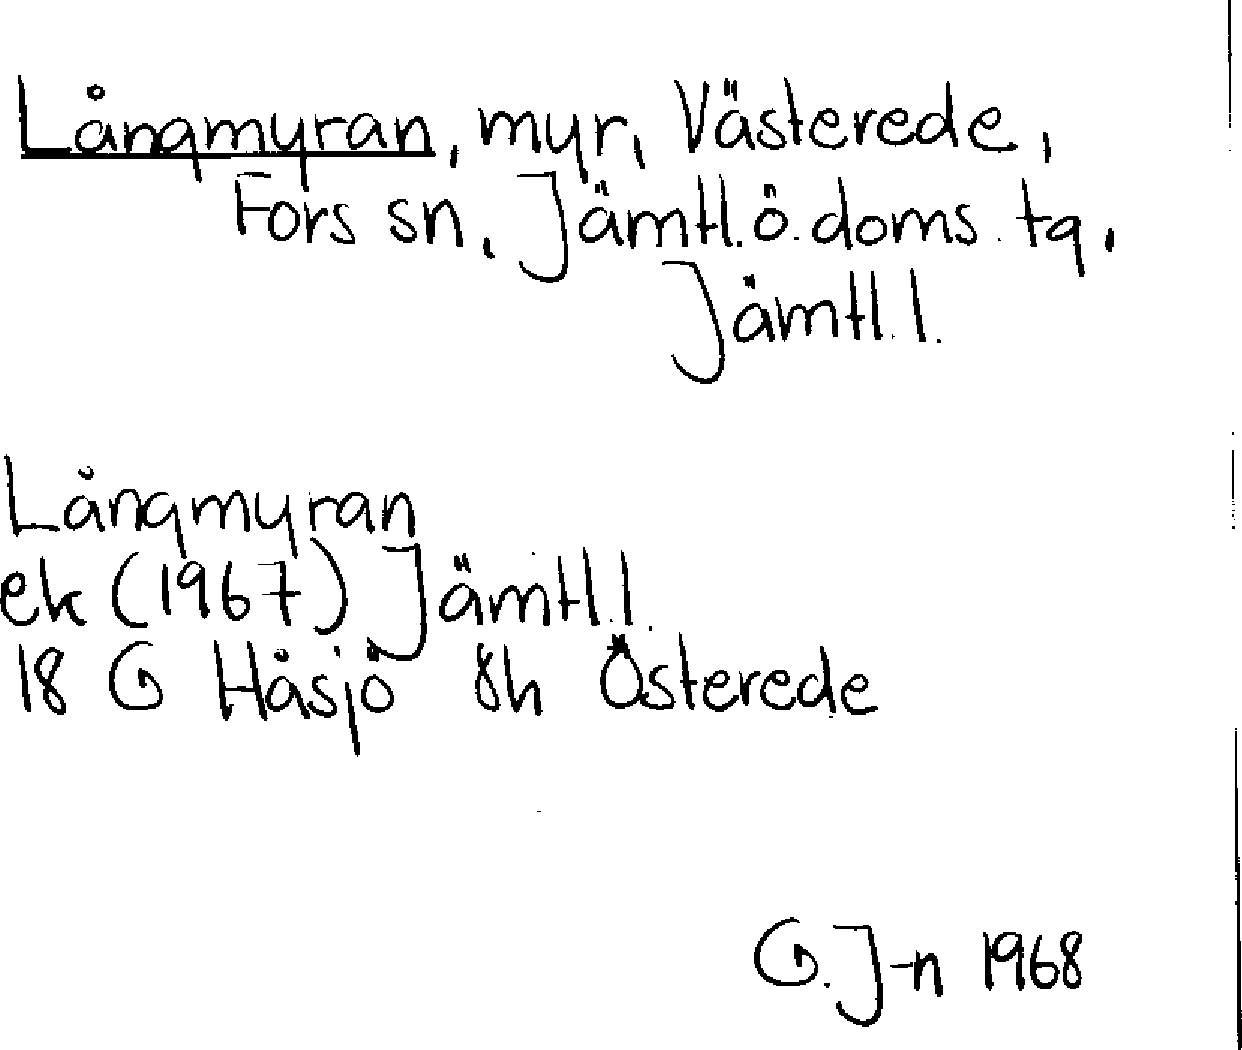 Långmyran, myr, Västerede,
Fors sn, Jämtl. ö. doms. tg,
Jämtl. l.
Långmyran
ek (1967) Jämtl. l.
18 G Håsjö 8h Österede
G. J-n 1968